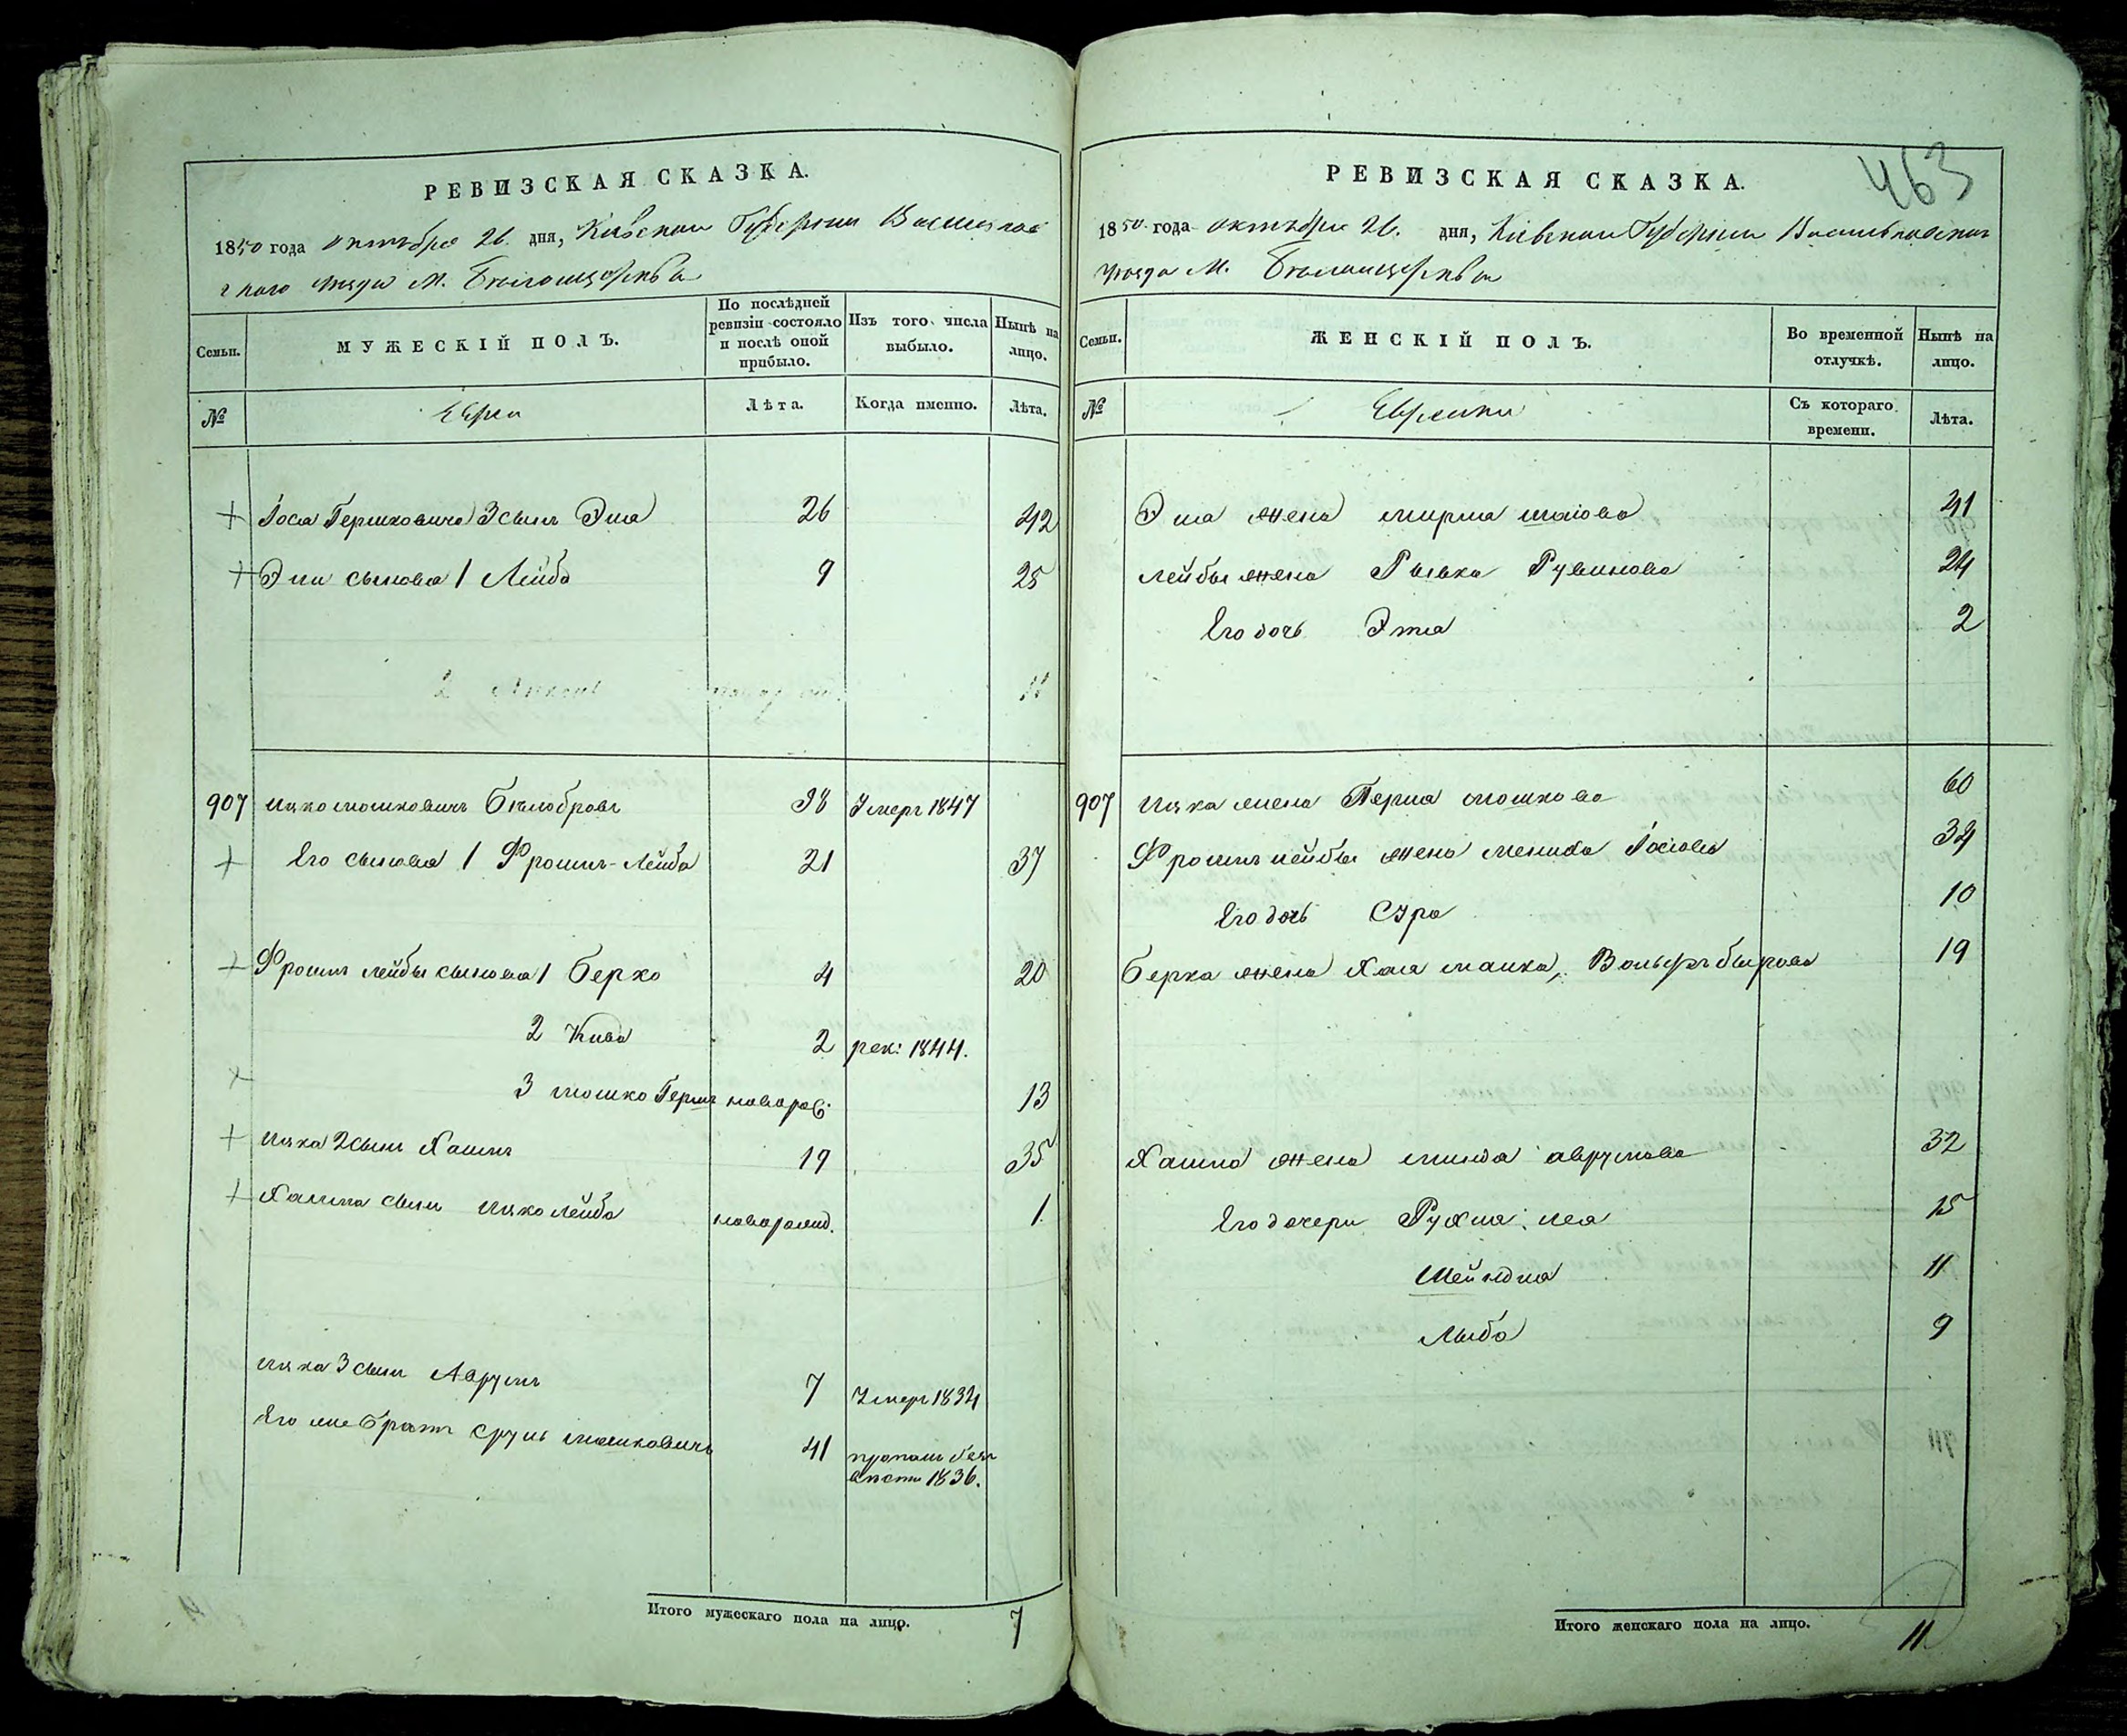 РЕВИЗСКАЯ СКАЗКА.
1850 года октября 26. дня, Кіевской Губерніи Василков
скаго уезда М. Белоцеркви
Семьи.
МУЖЕСКІЙ ПОЛЪ.
По послѣдней ревизіи состояло и послѣ оной прибыло.
Изъ того числа выбыло.
Нынѣ на лицо.
№
Евреи
Лѣта.
Когда именно.
Лѣта.
+ Іося Гершковича 3 сынъ Эля 26 42
+ Эли сыновья 1 Лейба 9 25
2 11
907 Ицко Мошковичъ Белобровъ 38 Умеръ 1847
+ Его сыновья 1 Фроимъ-Лейба 21 37
+ Фроимъ Лейбы сыновья 1 Берко 4 20
2 Кива 2 рек: 1844.
+ 3 Мошко Гершъ новорож. 13
+ Ицка 2 сынъ Хаимъ 19 35
+ Хаима сынъ Ицко Лейба новорожд. 1
Ицка 3 сынъ Аврумъ 7 Умеръ 1834
Его же братъ Сруль Мошковичъ 41 пропалъ безъ
вести 1836.
Итого мужескаго пола на лицо. 7
463
РЕВИЗСКАЯ СКАЗКА.
1850 года октября 26. дня, Кіевской Губерніи Васильковскаго
уезда М. Белоцеркви
Семьи.
ЖЕНСКІЙ ПОЛЪ.
Во временной отлучкѣ.
Нынѣ на лицо.
№
Еврейки
Съ котораго времени.
Лѣта.
Эля жена Мирля 41
Лейбы жена Рывка Рувинова 24
Его дочь Этля 2
907 Ицка жена Перля Мошкова 60
Фроимъ Лейбы жена Мениха Іосіова 34
Его дочь Сура 10
Берка жена Хая Малка, 19
Хаима жена Минда Аврумова 32
Его дочери Рухля, Лея 15
Шейндля 11
Лыба 9
Итого женскаго пола на лицо. 11